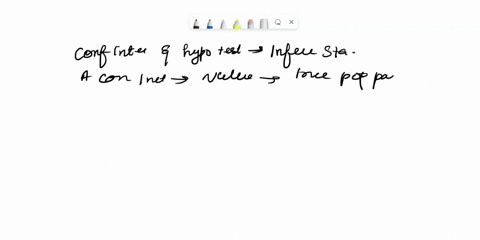 Conf inter & hypo test → Infere Sta.
A con inet → value → true pop pa